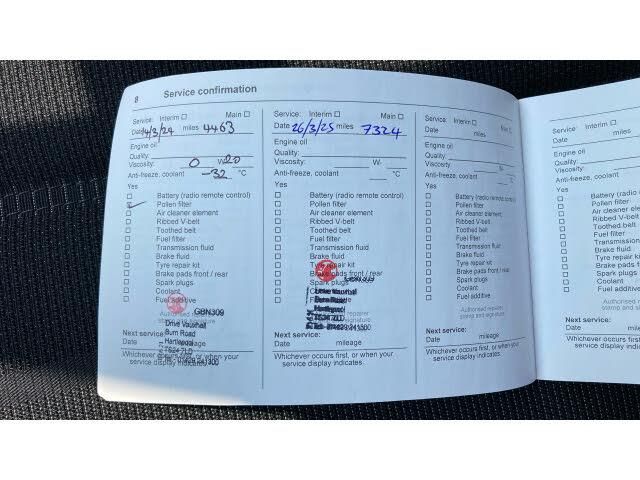 8 Service confirmation
Service: Interim ☐ Main ☐
Date 14/3/24 miles 4463
Engine oil
Quality:
Viscosity: 0 W- 20
Anti-freeze, coolant -32 °C
Yes
☐ Battery (radio remote control)
☑ Pollen filter
☐ Air cleaner element
☐ Ribbed V-belt
☐ Toothed belt
☐ Fuel filter
☐ Transmission fluid
☐ Brake fluid
☐ Tyre repair kit
☐ Brake pads front / rear
☐ Spark plugs
☐ Coolant
☐ Fuel additive
GBN309
Authorised repairer
stamp and signature
Drive Vauxhall
Burn Road
Hartlepool
Next service:
Date mileage
Whichever occurs first, or when your
service display indicates.
Service: Interim ☐ Main ☐
Date 26/3/25 miles 7324
Engine oil
Quality:
Viscosity: W-
Anti-freeze, coolant °C
Yes
☐ Battery (radio remote control)
☐ Pollen filter
☐ Air cleaner element
☐ Ribbed V-belt
☐ Toothed belt
☐ Fuel filter
☐ Transmission fluid
☐ Brake fluid
☐ Tyre repair kit
☐ Brake pads front / rear
☐ Spark plugs
Drive Vauxhall
Burn Road
Hartlepool
repairer
signature
Next service:
Date mileage
Whichever occurs first, or when your
service display indicates.
Service: Interim ☐ Main ☐
Date miles
Engine oil
Quality:
Viscosity: W-
Anti-freeze, coolant °C
Yes
☐ Battery (radio remote control)
☐ Pollen filter
☐ Air cleaner element
☐ Ribbed V-belt
☐ Toothed belt
☐ Fuel filter
☐ Transmission fluid
☐ Brake fluid
☐ Tyre repair kit
☐ Brake pads front / rear
☐ Spark plugs
☐ Coolant
☐ Fuel additive
Authorised repairer
stamp and signature
Next service:
Date mileage
Whichever occurs first, or when your
service display indicates.
Service: Interim ☐
Date miles
Engine oil
Quality:
Viscosity:
Anti-freeze, coolant
Yes
☐ Battery (radio rem
☐ Pollen filter
☐ Air cleaner elem
☐ Ribbed V-belt
☐ Toothed belt
☐ Fuel filter
☐ Transmission flu
☐ Brake fluid
☐ Tyre repair kit
☐ Brake pads fron
☐ Spark plugs
☐ Coolant
☐ Fuel additive
Authorised
stamp and si
Next service:
Date mile
Whichever occurs first, o
service display ind